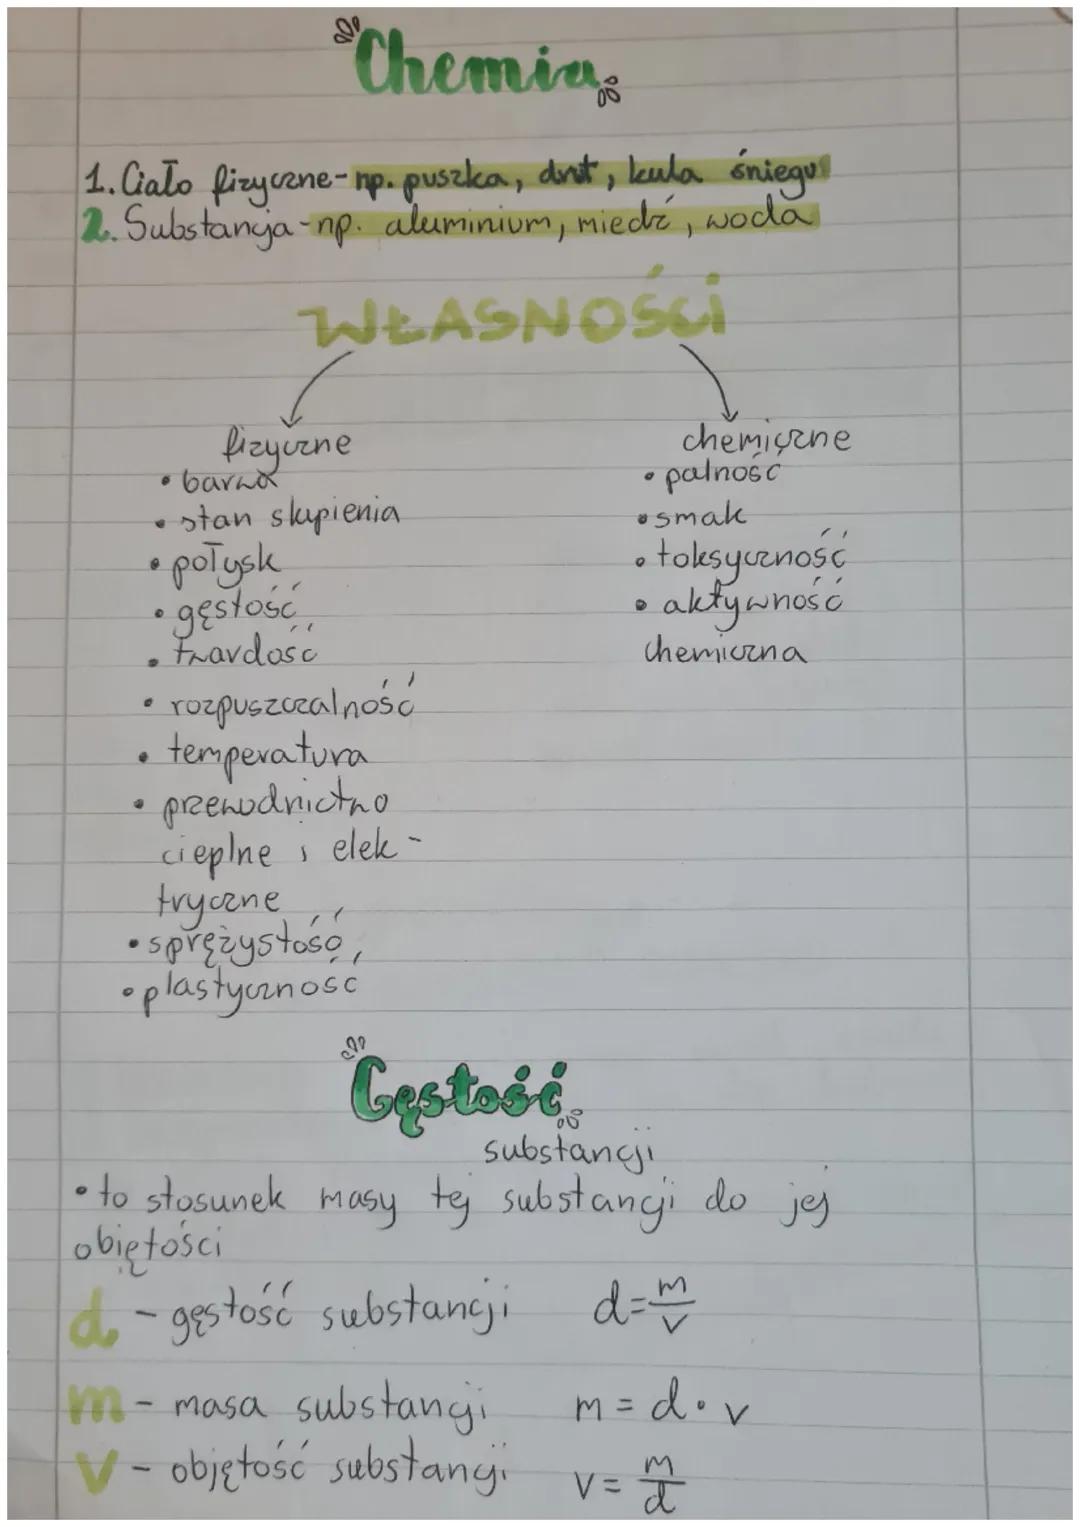 Chemia
1. Ciało fizyczne - np. puszka, drut, kula śniegu
2. Substancja - np. aluminium, miedź, woda
WŁASNOŚCi
fizyczne
• barwa
• stan skupienia
• połysk
• gęstość
• twardość
• rozpuszczalność
• temperatura
• przewodnictwo
cieplne i elek-
tryczne
• sprężystość
• plastyczność
chemiczne
• palność
• smak
• toksyczność
• aktywność
chemiczna
Gęstość
substancji
• to stosunek masy tej substancji do jej
objętości
d - gęstość substancji d = m/v
m - masa substancji m = d · v
V - objętość substancji v = m/d